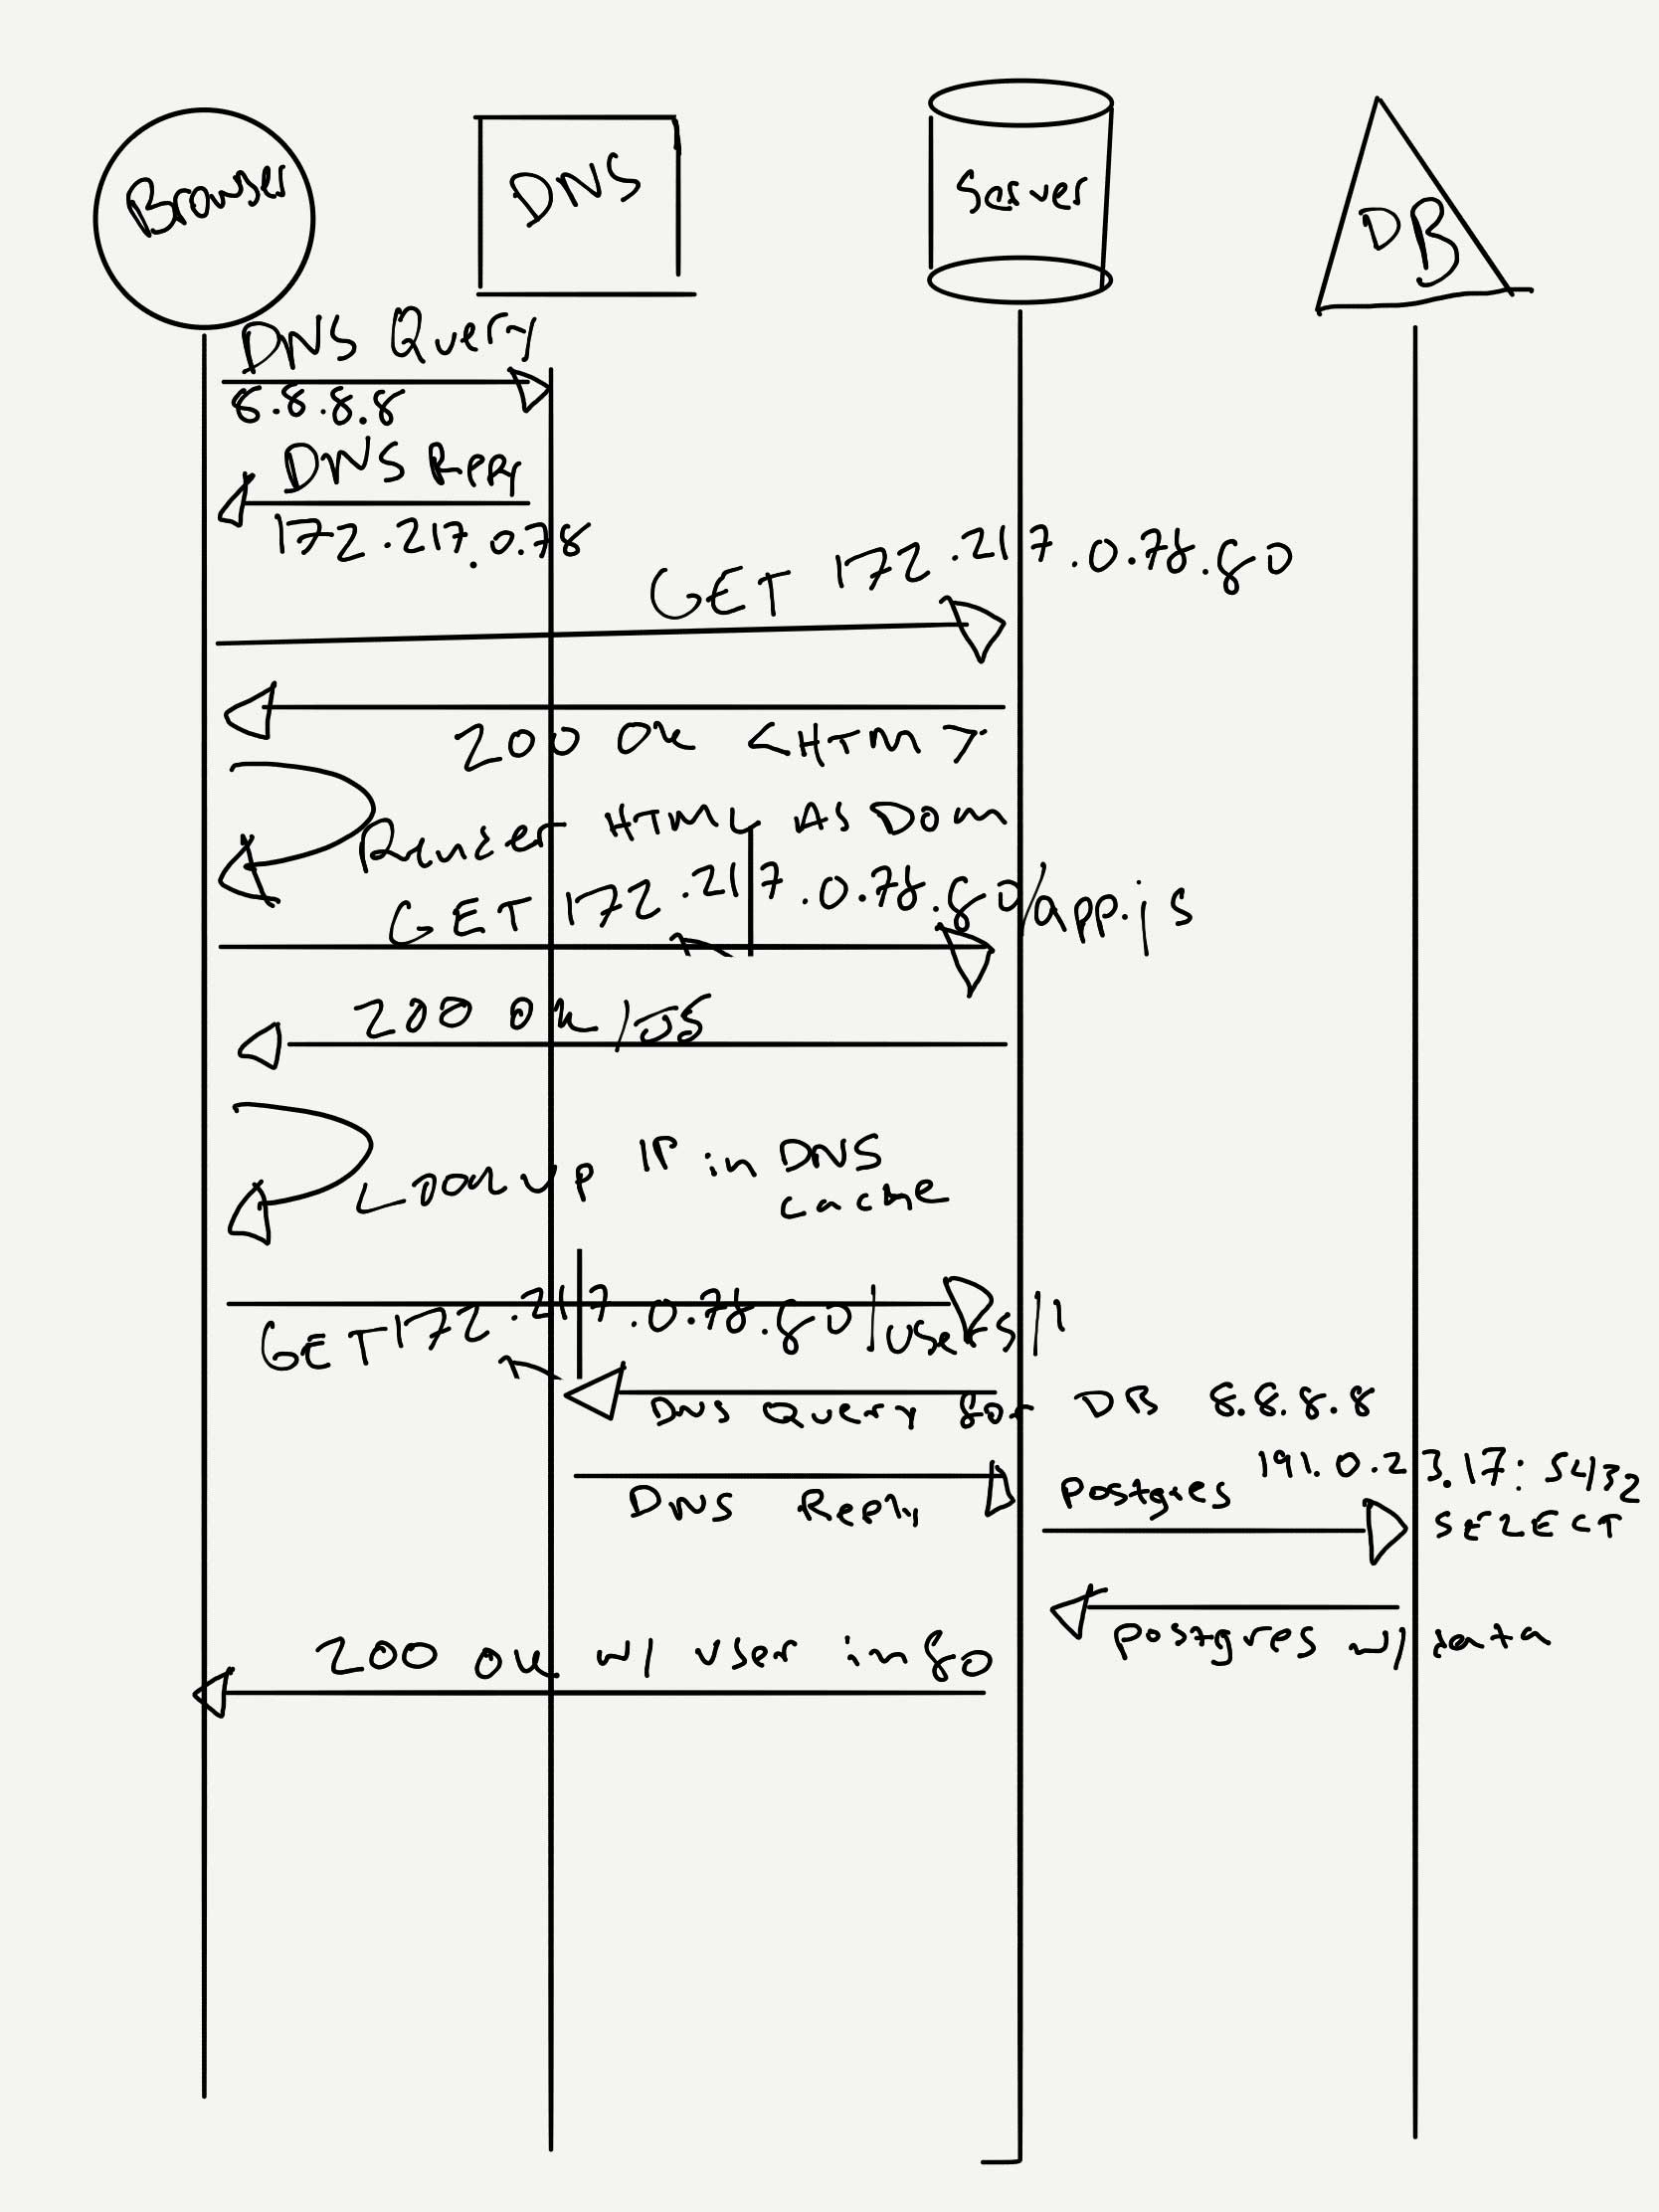 Browser
DNS
Server
DB
DNS Query
8.8.8.8
DNS Reply
172.217.0.78
GET 172.217.0.78.80
200 OK <HTM>
Render HTML AS DOM
GET 172.217.0.78.80/app.js
200 OK /JS
Look up IP in DNS
cache
GET 172.217.0.78.80/users/1
DNS Query for DB 8.8.8.8
DNS Reply
Postgres 191.0.23.17:5432
SELECT
Postgres w/ data
200 OK w/ user info